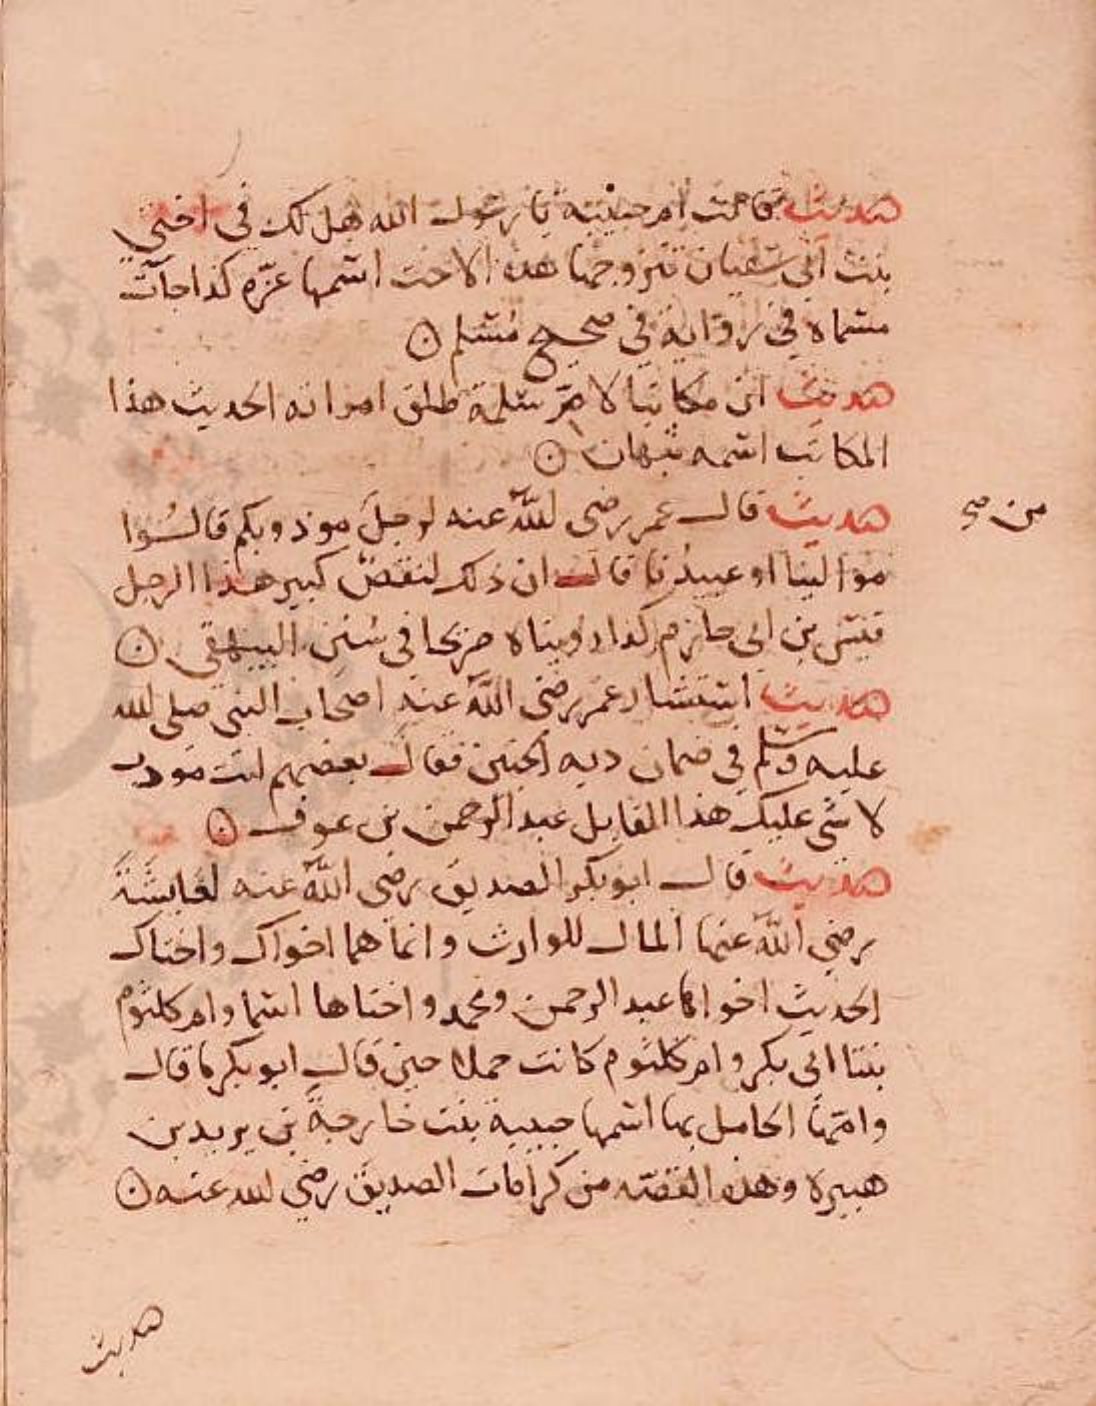 حديث قالت ام حبيبة يا رسول الله هل لك في اختي
بنت ابي سفيان تتزوجها هذه الاخت اسمها عزة كذا جاءت
مسماه في رواية في صحيح مسلم
حديث ان مكاتبا لام سلمة طلق امراته الحديث هذا
المكاتب اسمه نبهان
حديث قال عمر رضى الله عنه لرجل موذنوكم قالوا
من صح
موالينا او عبيدنا قال ان ذلك لنقص كبير هذا الرجل
قيس بن ابي حازم كذا رويناه صريحا في سنن البيهقي
حديث استشار عمر رضى الله عنه اصحاب النبي صلى الله
عليه وسلم في ضمان دية الجنين فقال بعضهم انت مودب
لا شى عليك هذا القايل عبد الرحمن بن عوف
حديث قال ابو بكر الصديق رضى الله عنه لعايشة
رضي الله عنها المال للوارث وانما هما اخواك واختاك
الحديث اخواها عبد الرحمن ومحمد واختاها اسما وام كلثوم
بنتا ابي بكر وام كلثوم كانت حملا حين قال ابو بكر ما قال
وامها الحامل بها اسمها حبيبة بنت خارجة بن يزيد بن
هبيرة وهذه القصه من كرامات الصديق رضي الله عنه
حديث